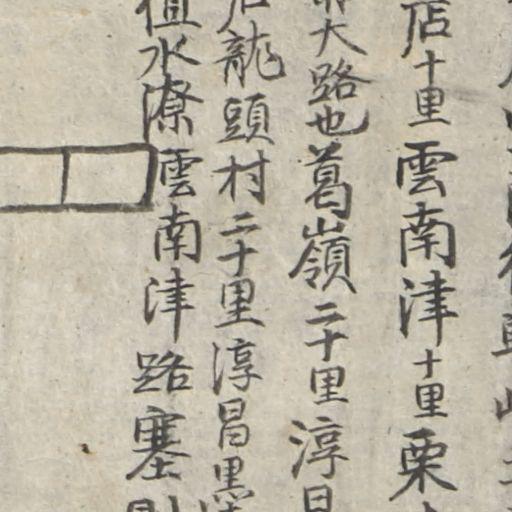 店十里雲南津十里栗
大路也葛嶺二十里淳昌
龍頭村二十里淳昌黑
值水潦雲南津路塞則